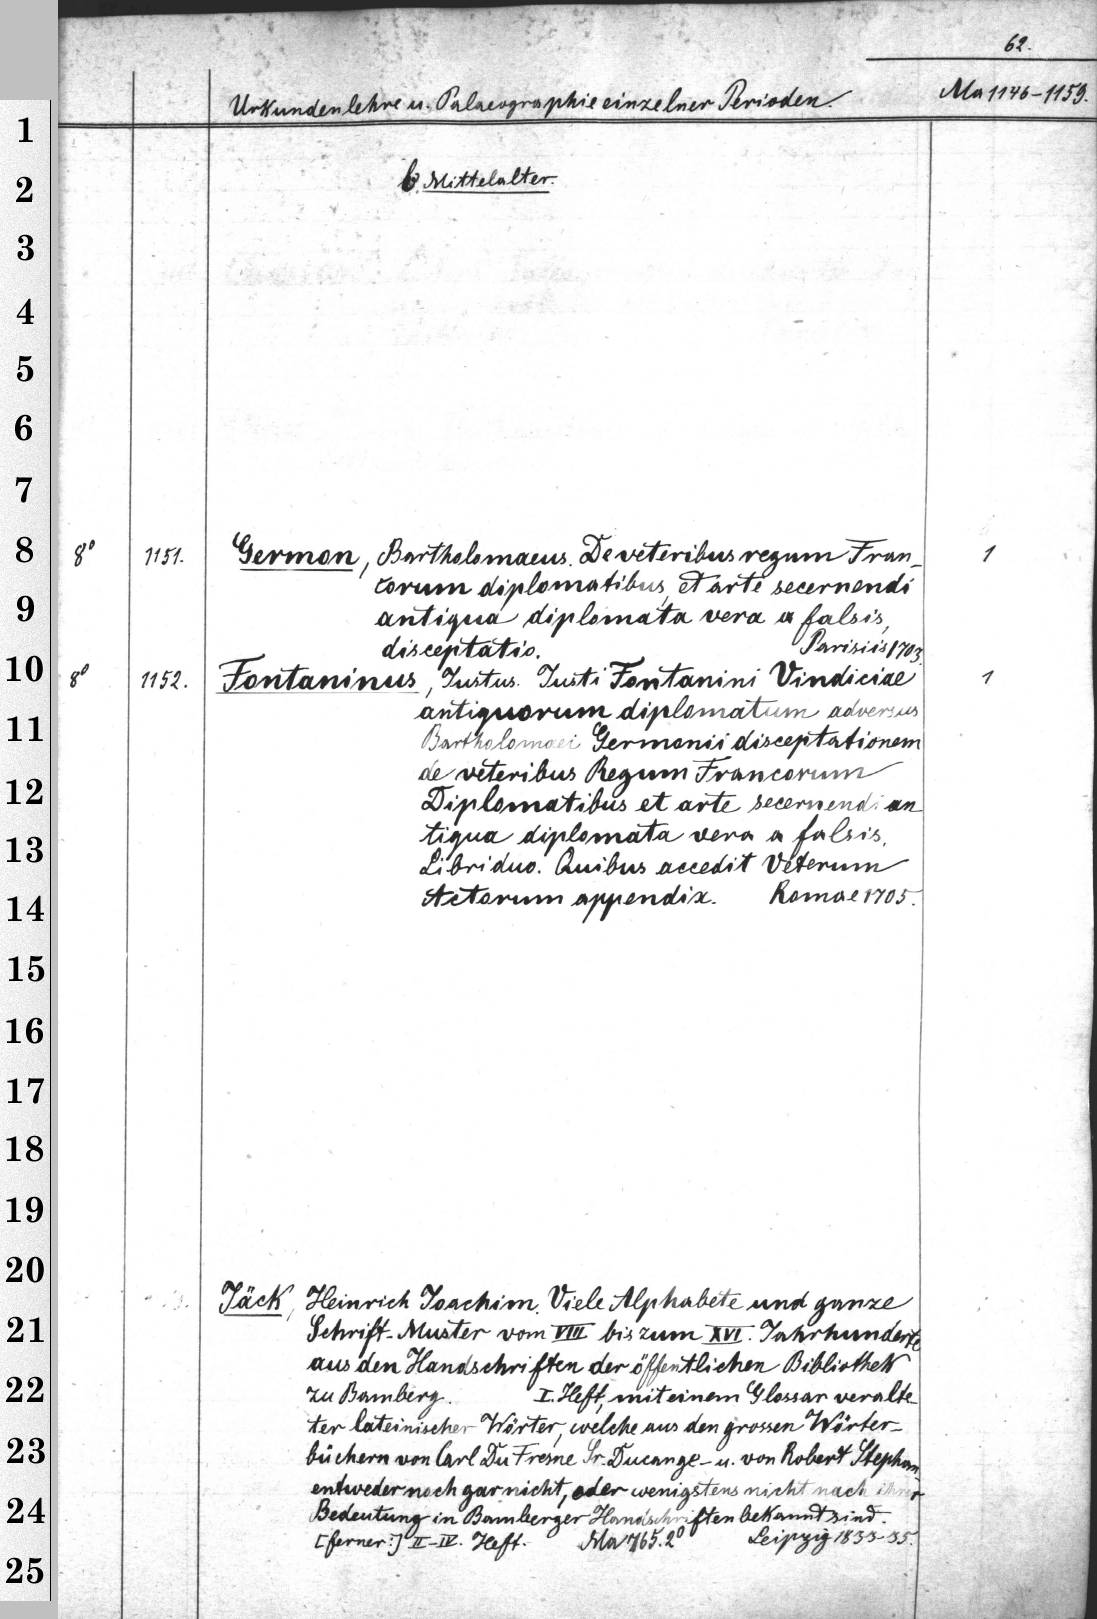 62.
Urkundenlehre u. Palaeographie einzelner Perioden.
Ma 1146-1159.
b. Mittelalter.
8° 1151. Germon, Bartholomaeus. De veteribus regum Fran- 1
corum diplomatibus, et arte secernendi
antiqua diplomata vera a falsis,
disceptatio. Parisiis 1703.
8° 1152. Fontaninus, Justus. Justi Fontanini Vindiciae 1
antiquorum diplomatum adversus
Bartholomaei Germonii disceptationem
de veteribus Regum Francorum
Diplomatibus et arte secernendi an
tiqua diplomata vera a falsis.
Libri duo. Quibus accedit Veterum
Actorum appendix. Romae 1705.
Jäck, Heinrich Joachim. Viele Alphabete und ganze
Schrift-Muster vom VIII bis zum XVI. Jahrhunderte
aus den Handschriften der öffentlichen Bibliothek
zu Bamberg. I. Heft, mit einem Glossar veralte-
ter lateinischer Wörter, welche aus den grossen Wörter-
büchern von Carl Du Fresne Sr. Ducange - u. von Robert Stephan
entweder noch gar nicht, oder wenigstens nicht nach ihrer
Bedeutung in Bamberger Handschriften bekannt sind.
[ferner:] II-IV. Heft. Ma 765.2° Leipzig 1833-35.
1
2
3
4
5
6
7
8
9
10
11
12
13
14
15
16
17
18
19
20
21
22
23
24
25